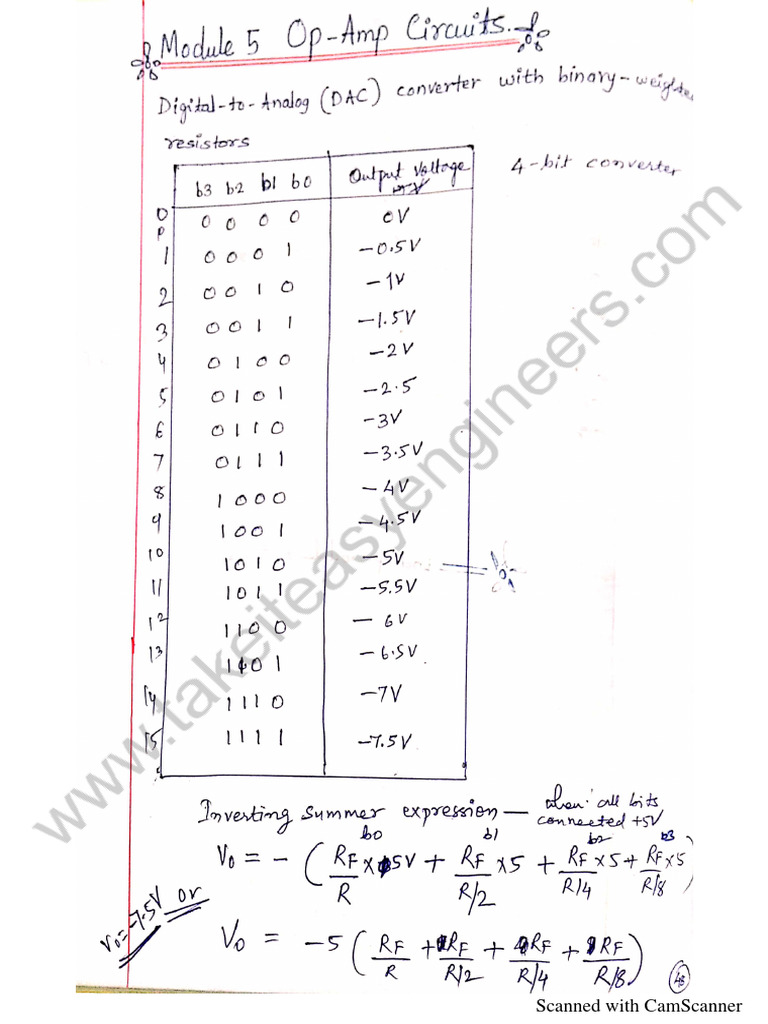 Module 5 Op-Amp Circuits.
Digital-to-Analog (DAC) converter with binary-weighte
resistors
4-bit converter
b3 b2 b1 b0 Output Voltage
0 0 0 0 0 0V
1 0 0 0 1 -0.5V
2 0 0 1 0 -1V
3 0 0 1 1 -1.5V
4 0 1 0 0 -2V
5 0 1 0 1 -2.5
6 0 1 1 0 -3V
7 0 1 1 1 -3.5V
8 1 0 0 0 -4V
9 1 0 0 1 -4.5V
10 1 0 1 0 -5V
11 1 0 1 1 -5.5V
12 1 1 0 0 -6V
13 1 1 0 1 -6.5V
14 1 1 1 0 -7V
15 1 1 1 1 -7.5V
Inverting summer expression — when all bits
connected +5V
b0 b1 b2 b3
V0 = - ( RF/R × 5V + RF/R/2 × 5 + RF/R/4 × 5 + RF/R/8 × 5 )
V0 = -7.5V or
V0 = -5 ( RF/R + RF/R/2 + RF/R/4 + RF/R/8 )
48
www.takeiteasyengineers.com
Scanned with CamScanner